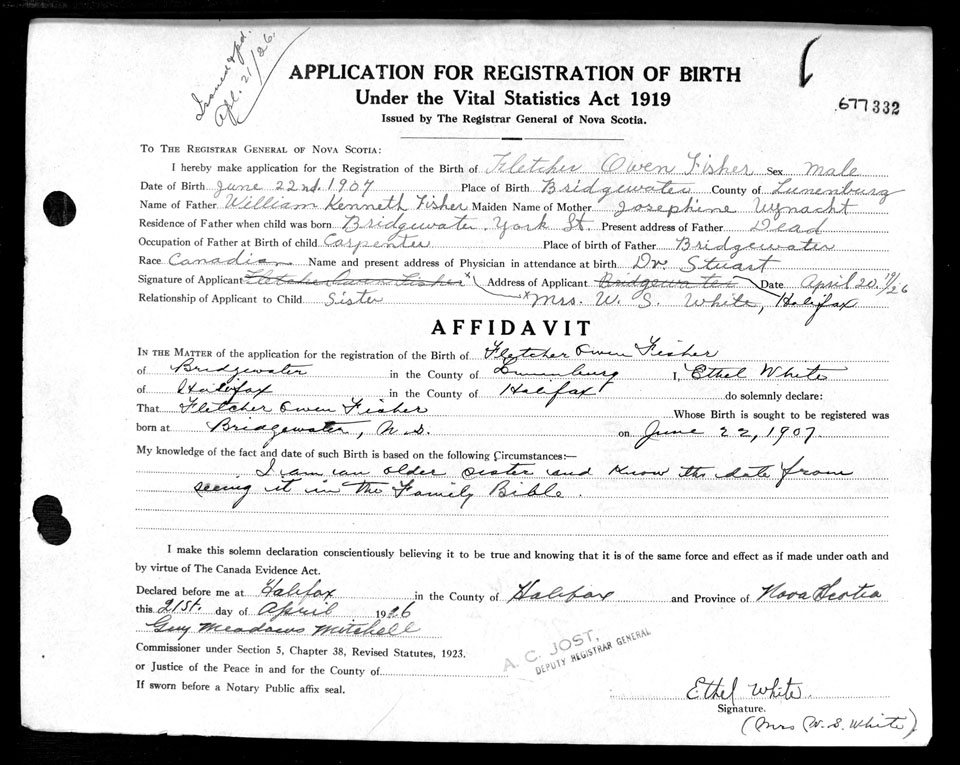 Issued & pd.
Apl. 21/26.
APPLICATION FOR REGISTRATION OF BIRTH
Under the Vital Statistics Act 1919
Issued by The Registrar General of Nova Scotia.
677332
TO THE REGISTRAR GENERAL OF NOVA SCOTIA:
I hereby make application for the Registration of the Birth of Fletcher Owen Fisher Sex Male
Date of Birth June 22nd. 1907 Place of Birth Bridgewater County of Lunenburg
Name of Father William Kenneth Fisher Maiden Name of Mother Josephine Wynacht
Residence of Father when child was born Bridgewater. York St. Present address of Father Dead
Occupation of Father at Birth of child Carpenter Place of birth of Father Bridgewater
Race Canadian Name and present address of Physician in attendance at birth Dr. Stuart
Signature of Applicant Fletcher Owen Fisher x Address of Applicant Bridgewater Date April 20, 19/26
Relationship of Applicant to Child Sister x Mrs. W. S. White, Halifax
AFFIDAVIT
IN THE MATTER of the application for the registration of the Birth of Fletcher Owen Fisher
of Bridgewater in the County of Lunenburg I, Ethel White
of Halifax in the County of Halifax do solemnly declare:
That Fletcher Owen Fisher Whose Birth is sought to be registered was
born at Bridgewater, N.S. on June 22, 1907.
My knowledge of the fact and date of such Birth is based on the following Circumstances:—
I am an older sister and know the date from
seeing it in the Family Bible.
I make this solemn declaration conscientiously believing it to be true and knowing that it is of the same force and effect as if made under oath and
by virtue of The Canada Evidence Act.
Declared before me at Halifax in the County of Halifax and Province of Nova Scotia
this 21st. day of April 1926
Guy Meadows Mitchell
Commissioner under Section 5, Chapter 38, Revised Statutes, 1923.
A. C. JOST,
DEPUTY REGISTRAR GENERAL
or Justice of the Peace in and for the County of
If sworn before a Notary Public affix seal.
Ethel White.
Signature.
(Mrs W. S. White)